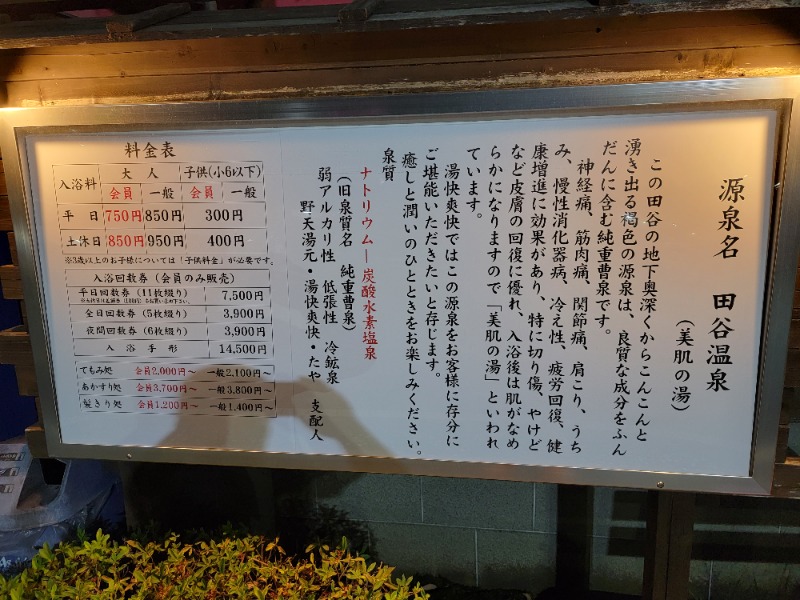 源泉名　田谷温泉
（美肌の湯）
この田谷の地下奥深くからこんこんと
湧き出る褐色の源泉は、良質な成分をふん
だんに含む純重曹泉です。
神経痛、筋肉痛、関節痛、肩こり、うち
み、慢性消化器病、冷え性、疲労回復、健
康増進に効果があり、特に切り傷、やけど
など皮膚の回復に優れ、入浴後は肌がなめ
らかになりますので「美肌の湯」といわれ
ています。
湯快爽快ではこの源泉をお客様に存分に
ご堪能いただきたいと存じます。
癒しと潤いのひとときをお楽しみください。
泉質
ナトリウム―炭酸水素塩泉
（旧泉質名　純重曹泉）
弱アルカリ性　低張性　冷鉱泉
野天湯元・湯快爽快・たや　支配人
料金表
入浴料 大人 子供(小6以下)
会員 一般 会員 一般
平日 750円 850円 300円
土休日 850円 950円 400円
※3歳以上のお子様については「子供料金」が必要です。
入浴回数券（会員のみ販売）
平日回数券（11枚綴り） 7,500円
全日回数券（5枚綴り） 3,900円
夜間回数券（6枚綴り） 3,900円
入浴手形 14,500円
てもみ処 会員2,000円～ 一般2,100円～
あかすり処 会員3,700円～ 一般3,800円～
髪きり処 会員1,200円～ 一般1,400円～